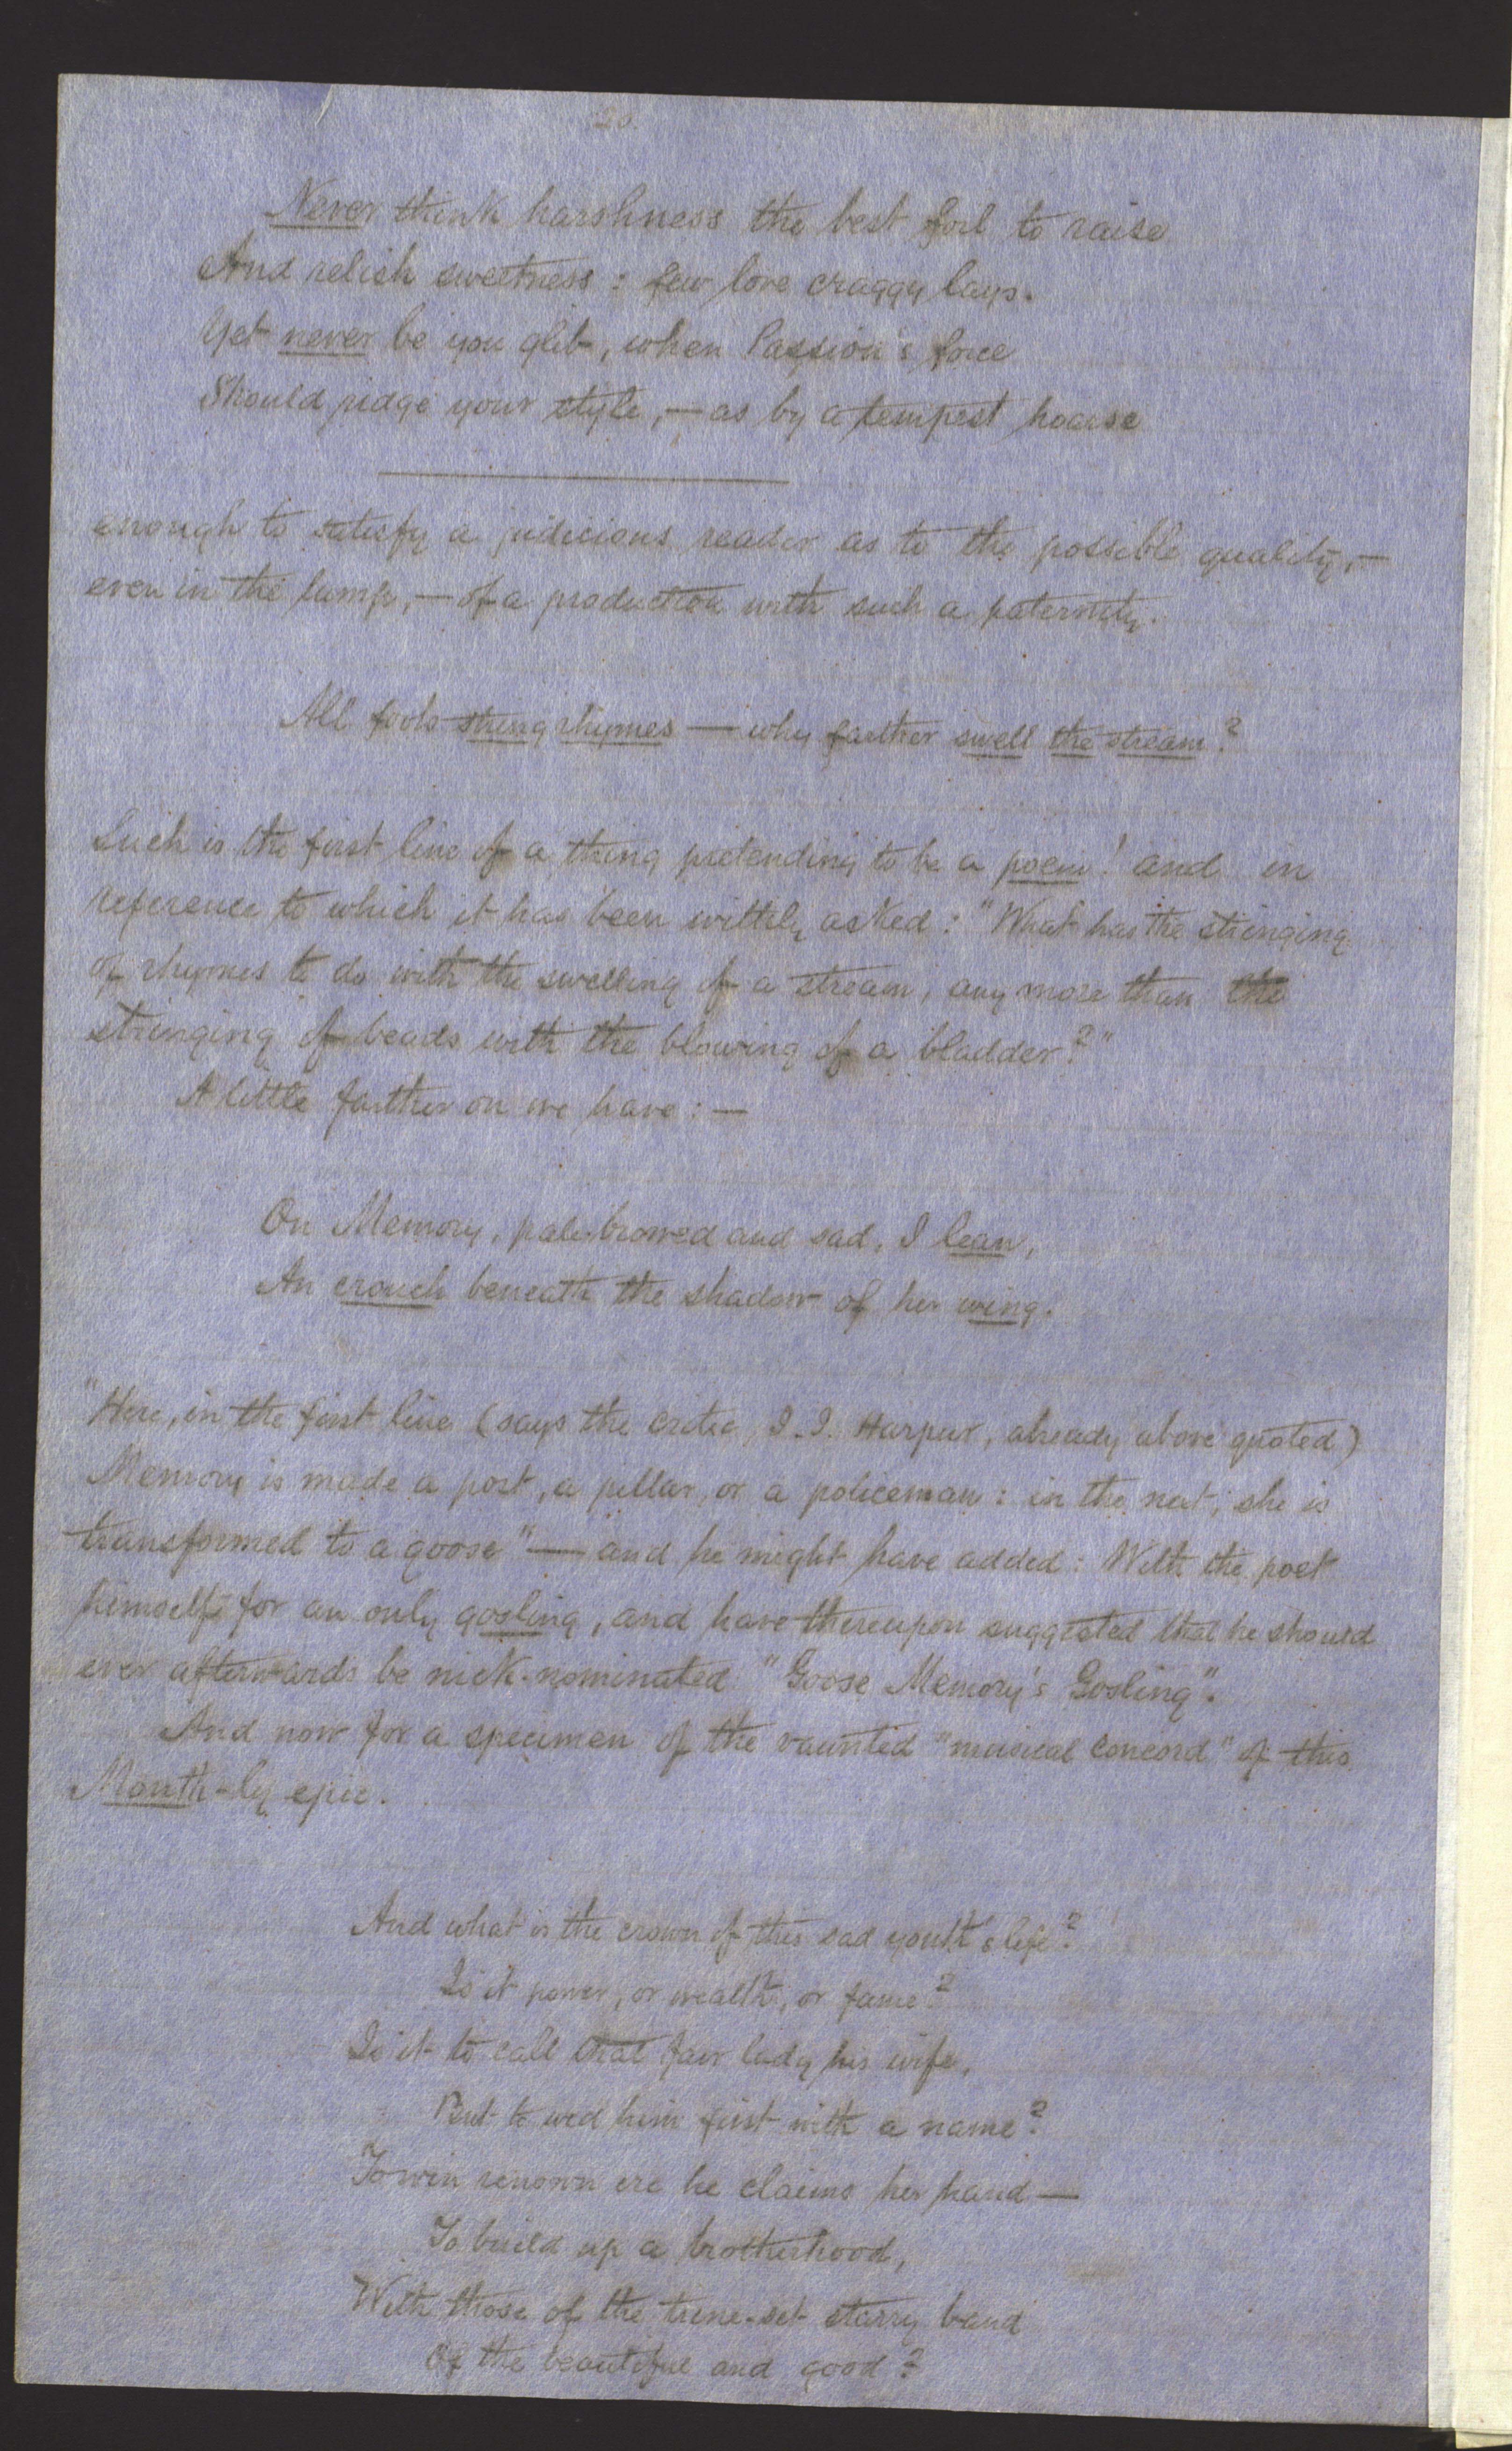 20.
Never think harshness the best foil to raise
And relish sweetness: few love craggy lays.
Yet never be you glib, when Passion's force
Should ridge your style,—as by a tempest hoarse
enough to satisfy a judicious reader as to the possible quality,—
even in the lump,—of a production with such a paternity.
All fools string rhymes — why farther swell the stream?
Such is the first line of a thing pretending to be a poem! and in
reference to which it has been wittily asked: "What has the stringing
of rhymes to do with the swelling of a stream, any more than the
stringing of beads with the blowing of a bladder?"
A little farther on we have:—
On Memory, pale-browed and sad, I lean,
An crouch beneath the shadow of her wing.
"Here, in the first line (says the critic, J. J. Harpur, already above quoted)
Memory is made a post, a pillar, or a policeman: in the next, she is
transformed to a goose"— and he might have added: With the poet
himself for an only gosling, and have thereupon suggested that he should
ever afterwards be nick-nominated "Goose Memory's Gosling".
And now for a specimen of the vaunted "musical concord" of this
Month-ly epic.
And what is the crown of this sad youth's life?
Is it power, or wealth, or fame?
Is it to call that fair lady his wife,
But to wed him first with a name?
To win renown ere he claims her hand—
To build up a brotherhood,
With those of the tune-set starry band
Of the beautiful and good?